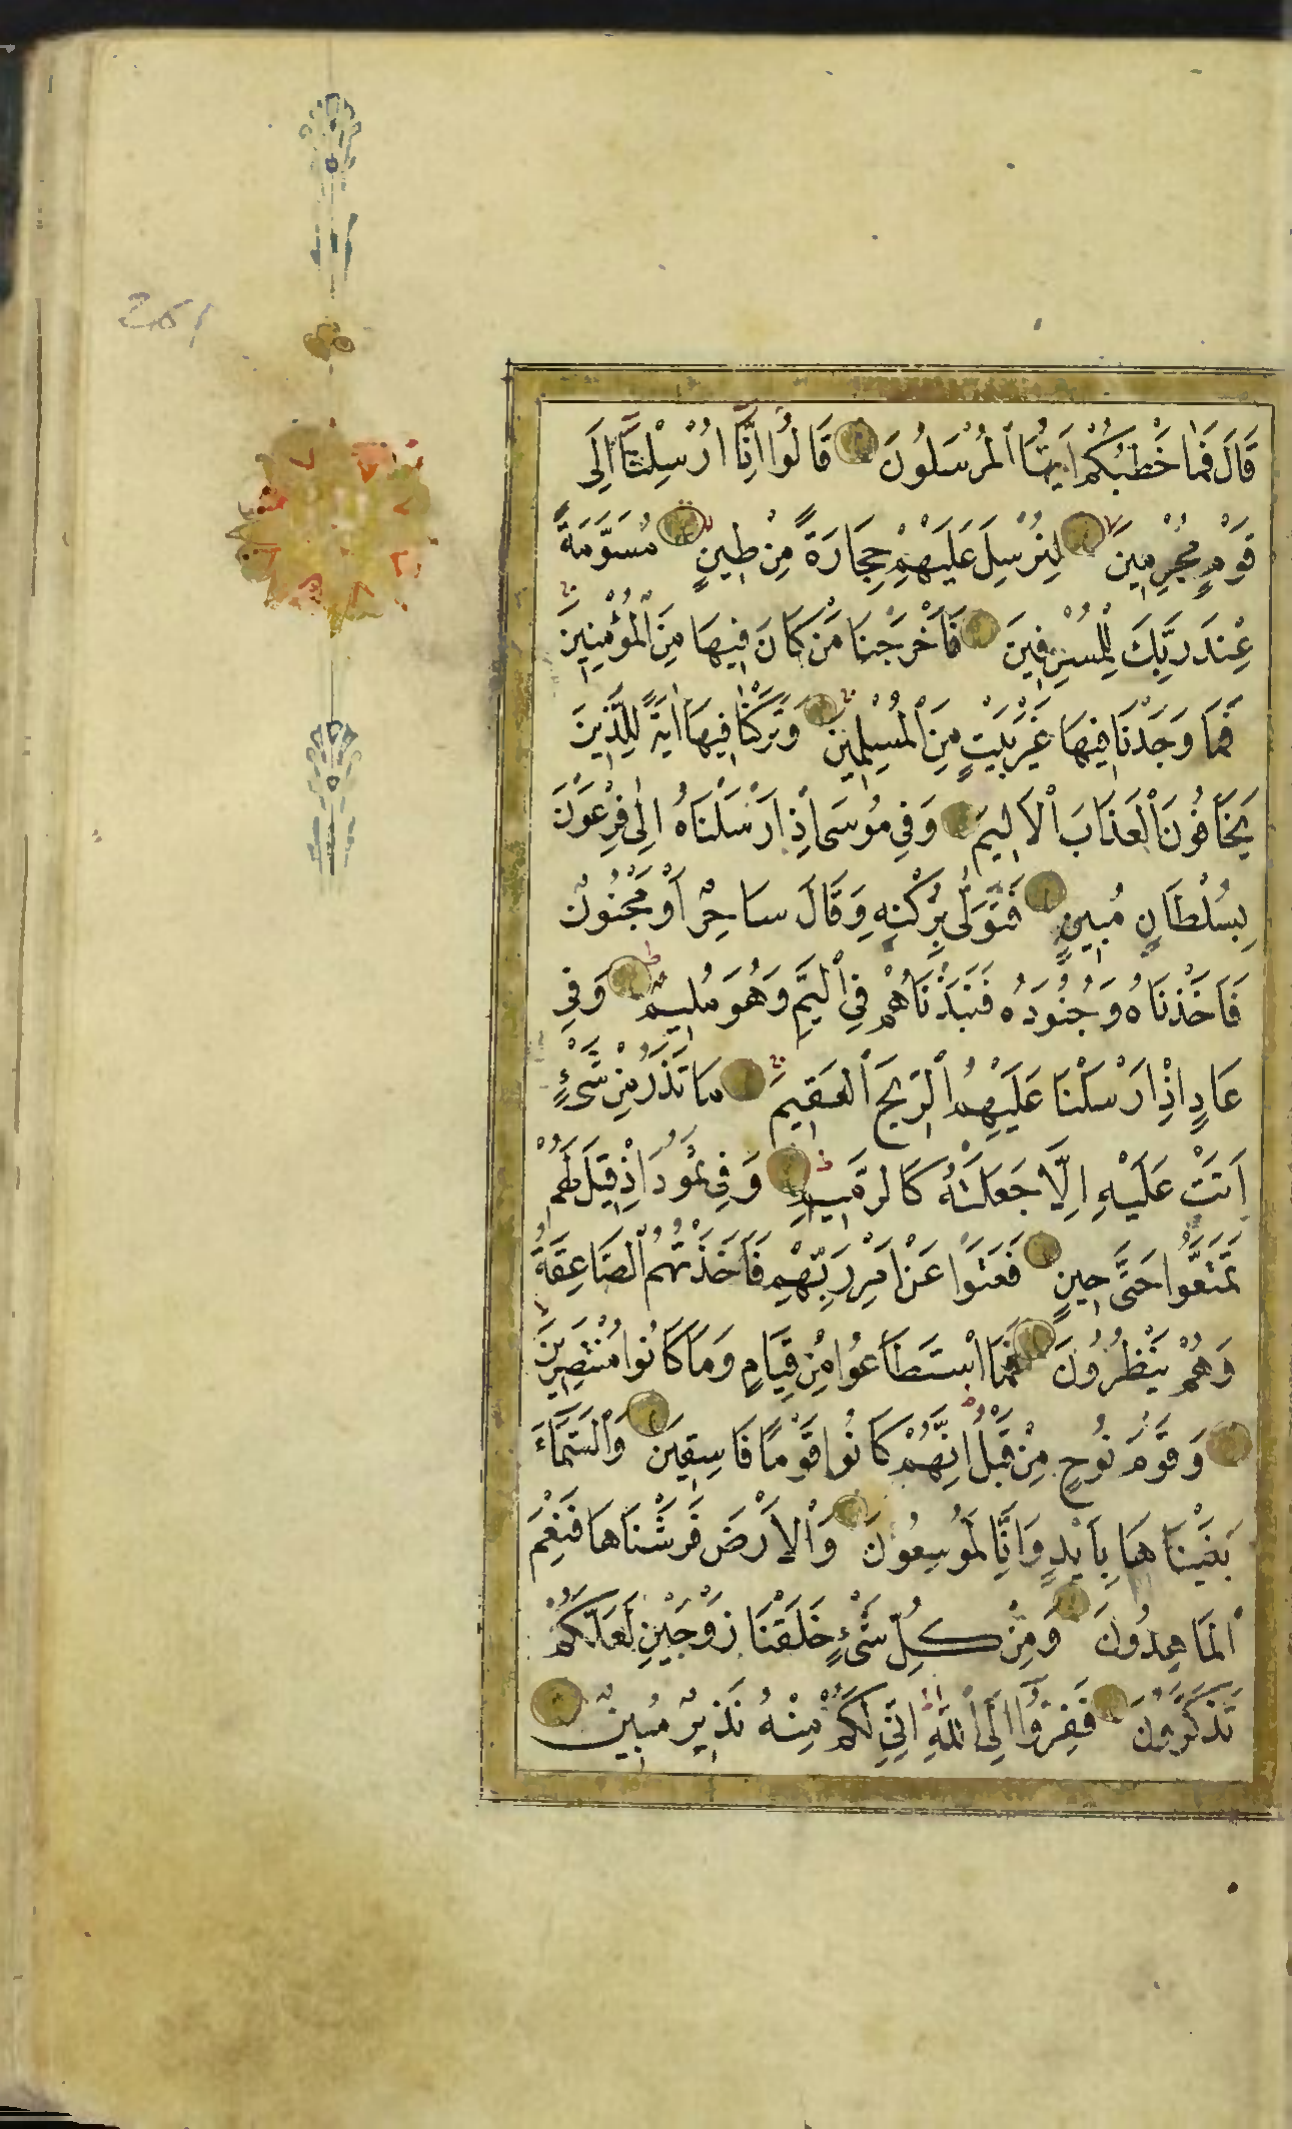 261
قَالَ فَمَا خَطْبُكُمْ اَيُّهَا الْمُرْسَلُونَ قَالُوا اِنَّا اُرْسِلْنَا اِلَى
قَوْمٍ مُجْرِمِينَ لِنُرْسِلَ عَلَيْهِمْ حِجَارَةً مِنْ طِينٍ مُسَوَّمَةً
عِنْدَ رَبِّكَ لِلْمُسْرِفِينَ فَاَخْرَجْنَا مَنْ كَانَ فِيهَا مِنَ الْمُؤْمِنِينَ
فَمَا وَجَدْنَا فِيهَا غَيْرَ بَيْتٍ مِنَ الْمُسْلِمِينَ وَتَرَكْنَا فِيهَا اٰيَةً لِلَّذِينَ
يَخَافُونَ الْعَذَابَ الْاَلِيمَ وَفِي مُوسَى اِذْ اَرْسَلْنَاهُ اِلٰى فِرْعَوْنَ
بِسُلْطَانٍ مُبِينٍ فَتَوَلّٰى بِرُكْنِهِ وَقَالَ سَاحِرٌ اَوْ مَجْنُونٌ
فَاَخَذْنَاهُ وَجُنُودَهُ فَنَبَذْنَاهُمْ فِي الْيَمِّ وَهُوَ مُلِيمٌ وَفِي
عَادٍ اِذْ اَرْسَلْنَا عَلَيْهِمُ الرِّيحَ الْعَقِيمَ مَا تَذَرُ مِنْ شَيْءٍ
اَتَتْ عَلَيْهِ اِلَّا جَعَلَتْهُ كَالرَّمِيمِ وَفِي ثَمُودَ اِذْ قِيلَ لَهُمْ
تَمَتَّعُوا حَتَّى حِينٍ فَعَتَوْا عَنْ اَمْرِ رَبِّهِمْ فَاَخَذَتْهُمُ الصَّاعِقَةُ
وَهُمْ يَنْظُرُونَ فَمَا اسْتَطَاعُوا مِنْ قِيَامٍ وَمَا كَانُوا مُنْتَصِرِينَ
وَقَوْمَ نُوحٍ مِنْ قَبْلُ اِنَّهُمْ كَانُوا قَوْمًا فَاسِقِينَ وَالسَّمَاءَ
بَنَيْنَاهَا بِاَيْدٍ وَاِنَّا لَمُوسِعُونَ وَالْاَرْضَ فَرَشْنَاهَا فَنِعْمَ
الْمَاهِدُونَ وَمِنْ كُلِّ شَيْءٍ خَلَقْنَا زَوْجَيْنِ لَعَلَّكُمْ
تَذَكَّرُونَ فَفِرُّوا اِلَى اللّٰهِ اِنِّي لَكُمْ مِنْهُ نَذِيرٌ مُبِينٌ